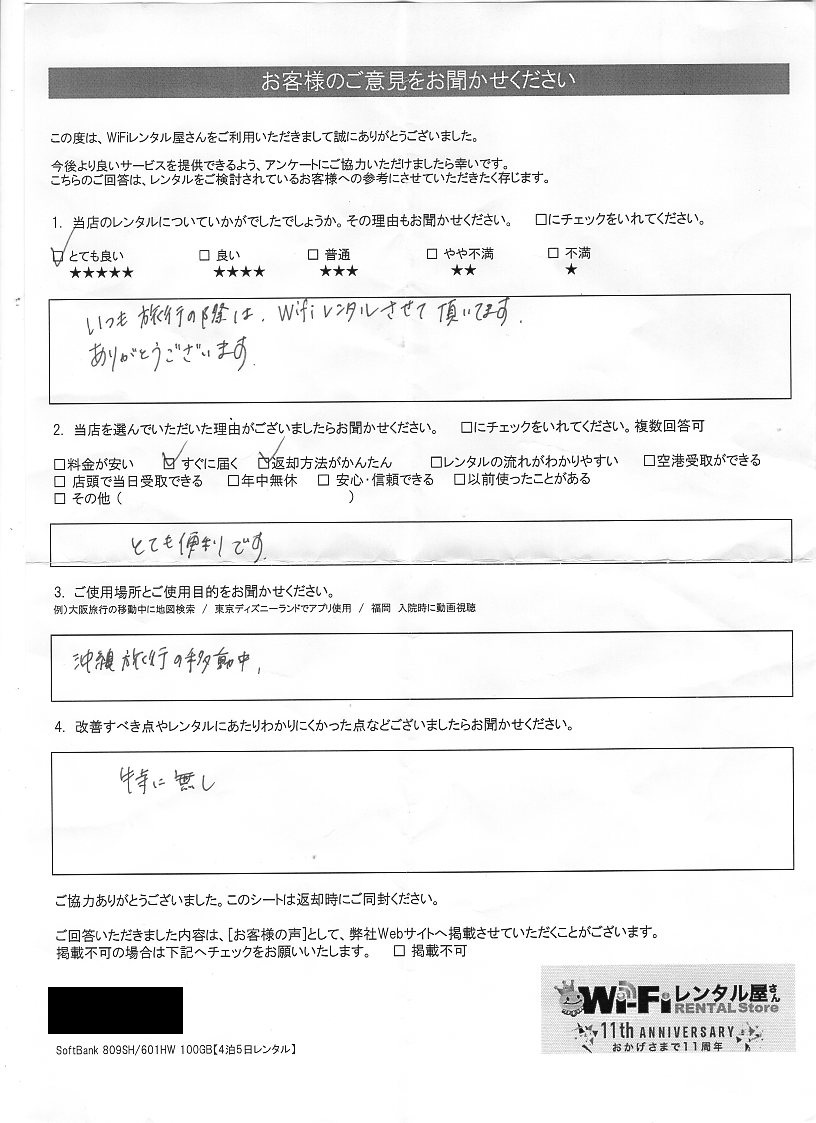 お客様のご意見をお聞かせください
この度は、WiFiレンタル屋さんをご利用いただきまして誠にありがとうございました。
今後より良いサービスを提供できるよう、アンケートにご協力いただけましたら幸いです。
こちらのご回答は、レンタルをご検討されているお客様への参考にさせていただきたく存じます。
1. 当店のレンタルについていかがでしたでしょうか。その理由もお聞かせください。 □にチェックをいれてください。
☑ とても良い □ 良い □ 普通 □ やや不満 □ 不満
★★★★★ ★★★★ ★★★ ★★ ★
いつも旅行の際は、Wifiレンタルさせて頂いてます。
ありがとうございます。
2. 当店を選んでいただいた理由がございましたらお聞かせください。 □にチェックをいれてください。複数回答可
□料金が安い ☑すぐに届く ☑返却方法がかんたん □レンタルの流れがわかりやすい □空港受取ができる
□ 店頭で当日受取できる □年中無休 □ 安心・信頼できる □以前使ったことがある
□ その他 ( )
とても便利です。
3. ご使用場所とご使用目的をお聞かせください。
例)大阪旅行の移動中に地図検索 / 東京ディズニーランドでアプリ使用 / 福岡 入院時に動画視聴
沖縄旅行の移動中。
4. 改善すべき点やレンタルにあたりわかりにくかった点などございましたらお聞かせください。
特に無し
ご協力ありがとうございました。このシートは返却時にご同封ください。
ご回答いただきました内容は、[お客様の声]として、弊社Webサイトへ掲載させていただくことがございます。
掲載不可の場合は下記へチェックをお願いいたします。 □ 掲載不可
Wi-Fiレンタル屋さん
RENTAL Store
11th ANNIVERSARY
おかげさまで11周年
SoftBank 809SH/601HW 100GB【4泊5日レンタル】